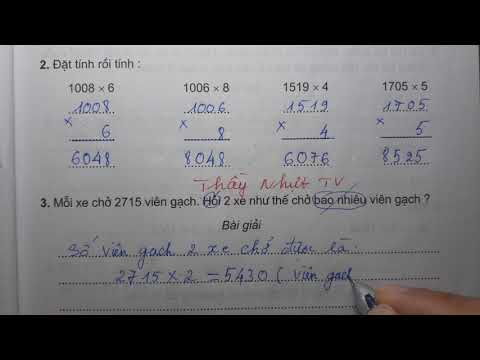 2. Đặt tính rồi tính :
1008 × 6 1006 × 8 1519 × 4 1705 × 5
1008 1006 1519 1705
× 6 × 8 × 4 × 5
6048 8048 6076 8525
Thầy Nhựt TV
3. Mỗi xe chở 2715 viên gạch. Hỏi 2 xe như thế chở bao nhiêu viên gạch ?
Bài giải
Số viên gạch 2 xe chở được là:
2715 × 2 = 5430 ( viên gạch